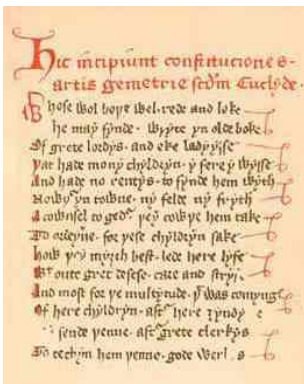 Hic incipiunt constituciones
artis gemetrie scdm Euclyde.
Whose wol boþe wel rede and loke
he may fynde wryte yn olde boke
Of grete lordys and eke ladyysse
þat hade mony chyldryn y fere y wysse
And hade no rentys to fynde hem wyth
Nowþ yn towne ny felde ny fryth
A cownsel to gedr þey cowþe hem take
To ordeyne for þese chyldryn sake
how þey myȝth best lede here lyfe
Wt oute gret desese care and stryf
And most for þe multytude þt was comyng
Of here chyldryn aft here
sende þenne aft grete clerkys
To techyn hem þenne gode